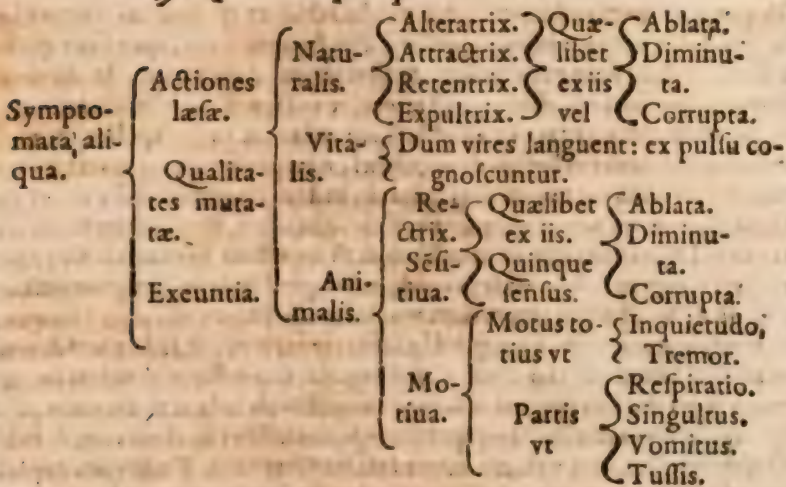 Symptomata, aliqua.
Actiones læsæ.
Qualitates mutatæ.
Exeuntia.
Naturalis.
Alteratrix.
Attractrix.
Retentrix.
Expultrix.
Quælibet ex iis vel
Ablata.
Diminuta.
Corrupta.
Vitalis.
Dum vires languent: ex pulsu cognoscuntur.
Animalis.
Rectrix.
Sēsitiua.
Quælibet ex iis.
Quinque sensus.
Ablata.
Diminuta.
Corrupta.
Motiua.
Motus totius vt
Inquietudo,
Tremor.
Partis vt
Respiratio.
Singultus.
Vomitus.
Tussis.